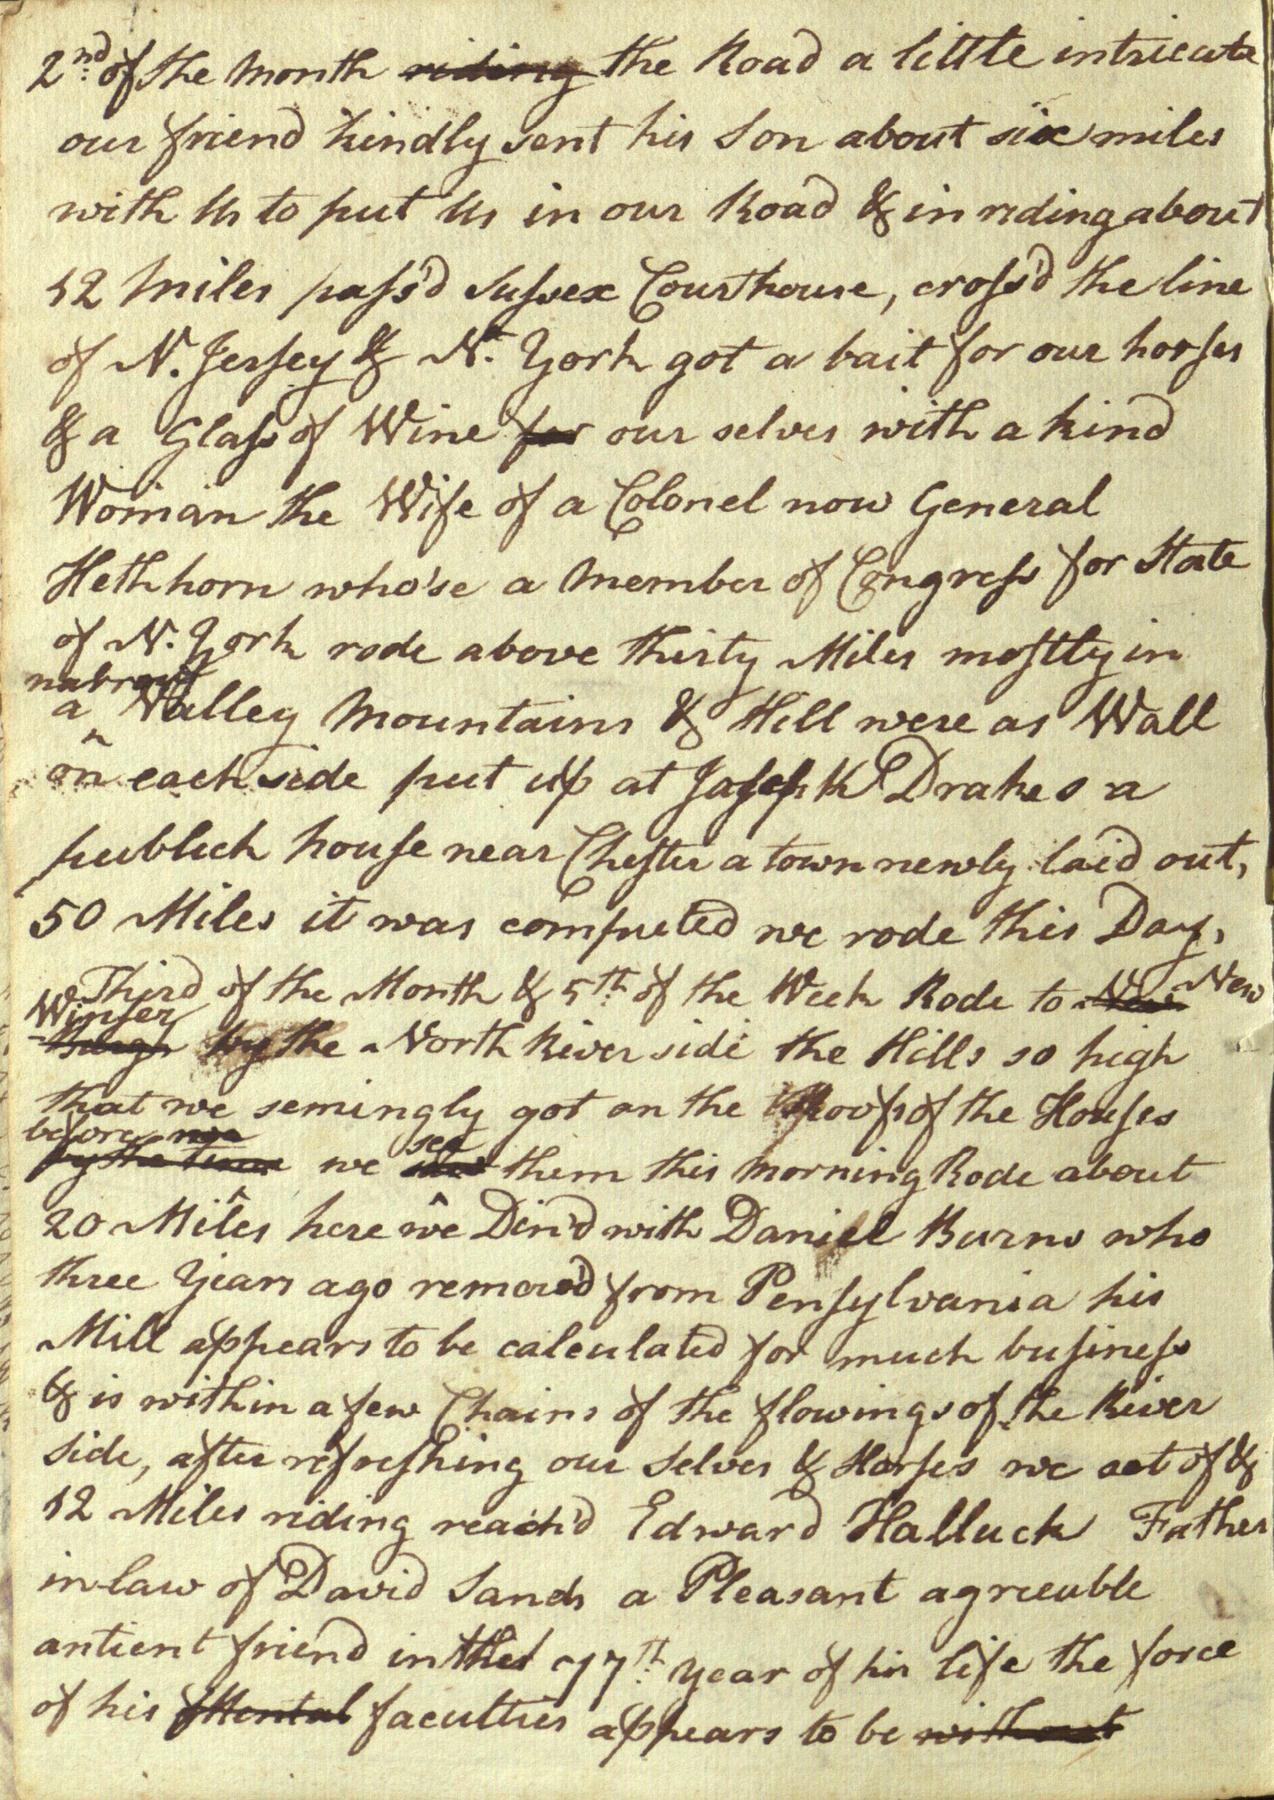 2nd of the Month riding the Road a little intricate
our friend kindly sent his Son about six miles
with Us to put Us in our Road & in riding about
12 Miles pass'd Sussex Courthouse, cross'd the line
of N. Jersey & N. York got a bait for our horses
& a Glass of Wine for our selves with a kind
Woman the Wife of a Colonel now General
Hethhorn who'se a Member of Congress for State
of N. York rode above thirty Miles mostly in
narrow
a Valley Mountains & Hill were as Wall
on each side put up at Joseph Drakes a
publick house near Chester a town newly laid out,
50 Miles it was computed we rode this Day,
Third of the Month & 5th of the Week Rode to New New
Winser
Burgh by the North River side the Hills so high
that we semingly got on the Roofs of the Houses
before
by the time we see them this morning Rode about
20 Miles here we Din'd with Daniel Burns who
three Years ago remov'd from Pensylvania his
Mill appears to be calculated for much business
& is within a few Chains of the flowings of the River
side, after refreshing our selves & Horses we set of &
12 Miles riding reach'd Edward Halluck Father
in-law of David Sands a Pleasant agreeable
antient friend in the 77th year of his life the force
of his Mental faculties appears to be without